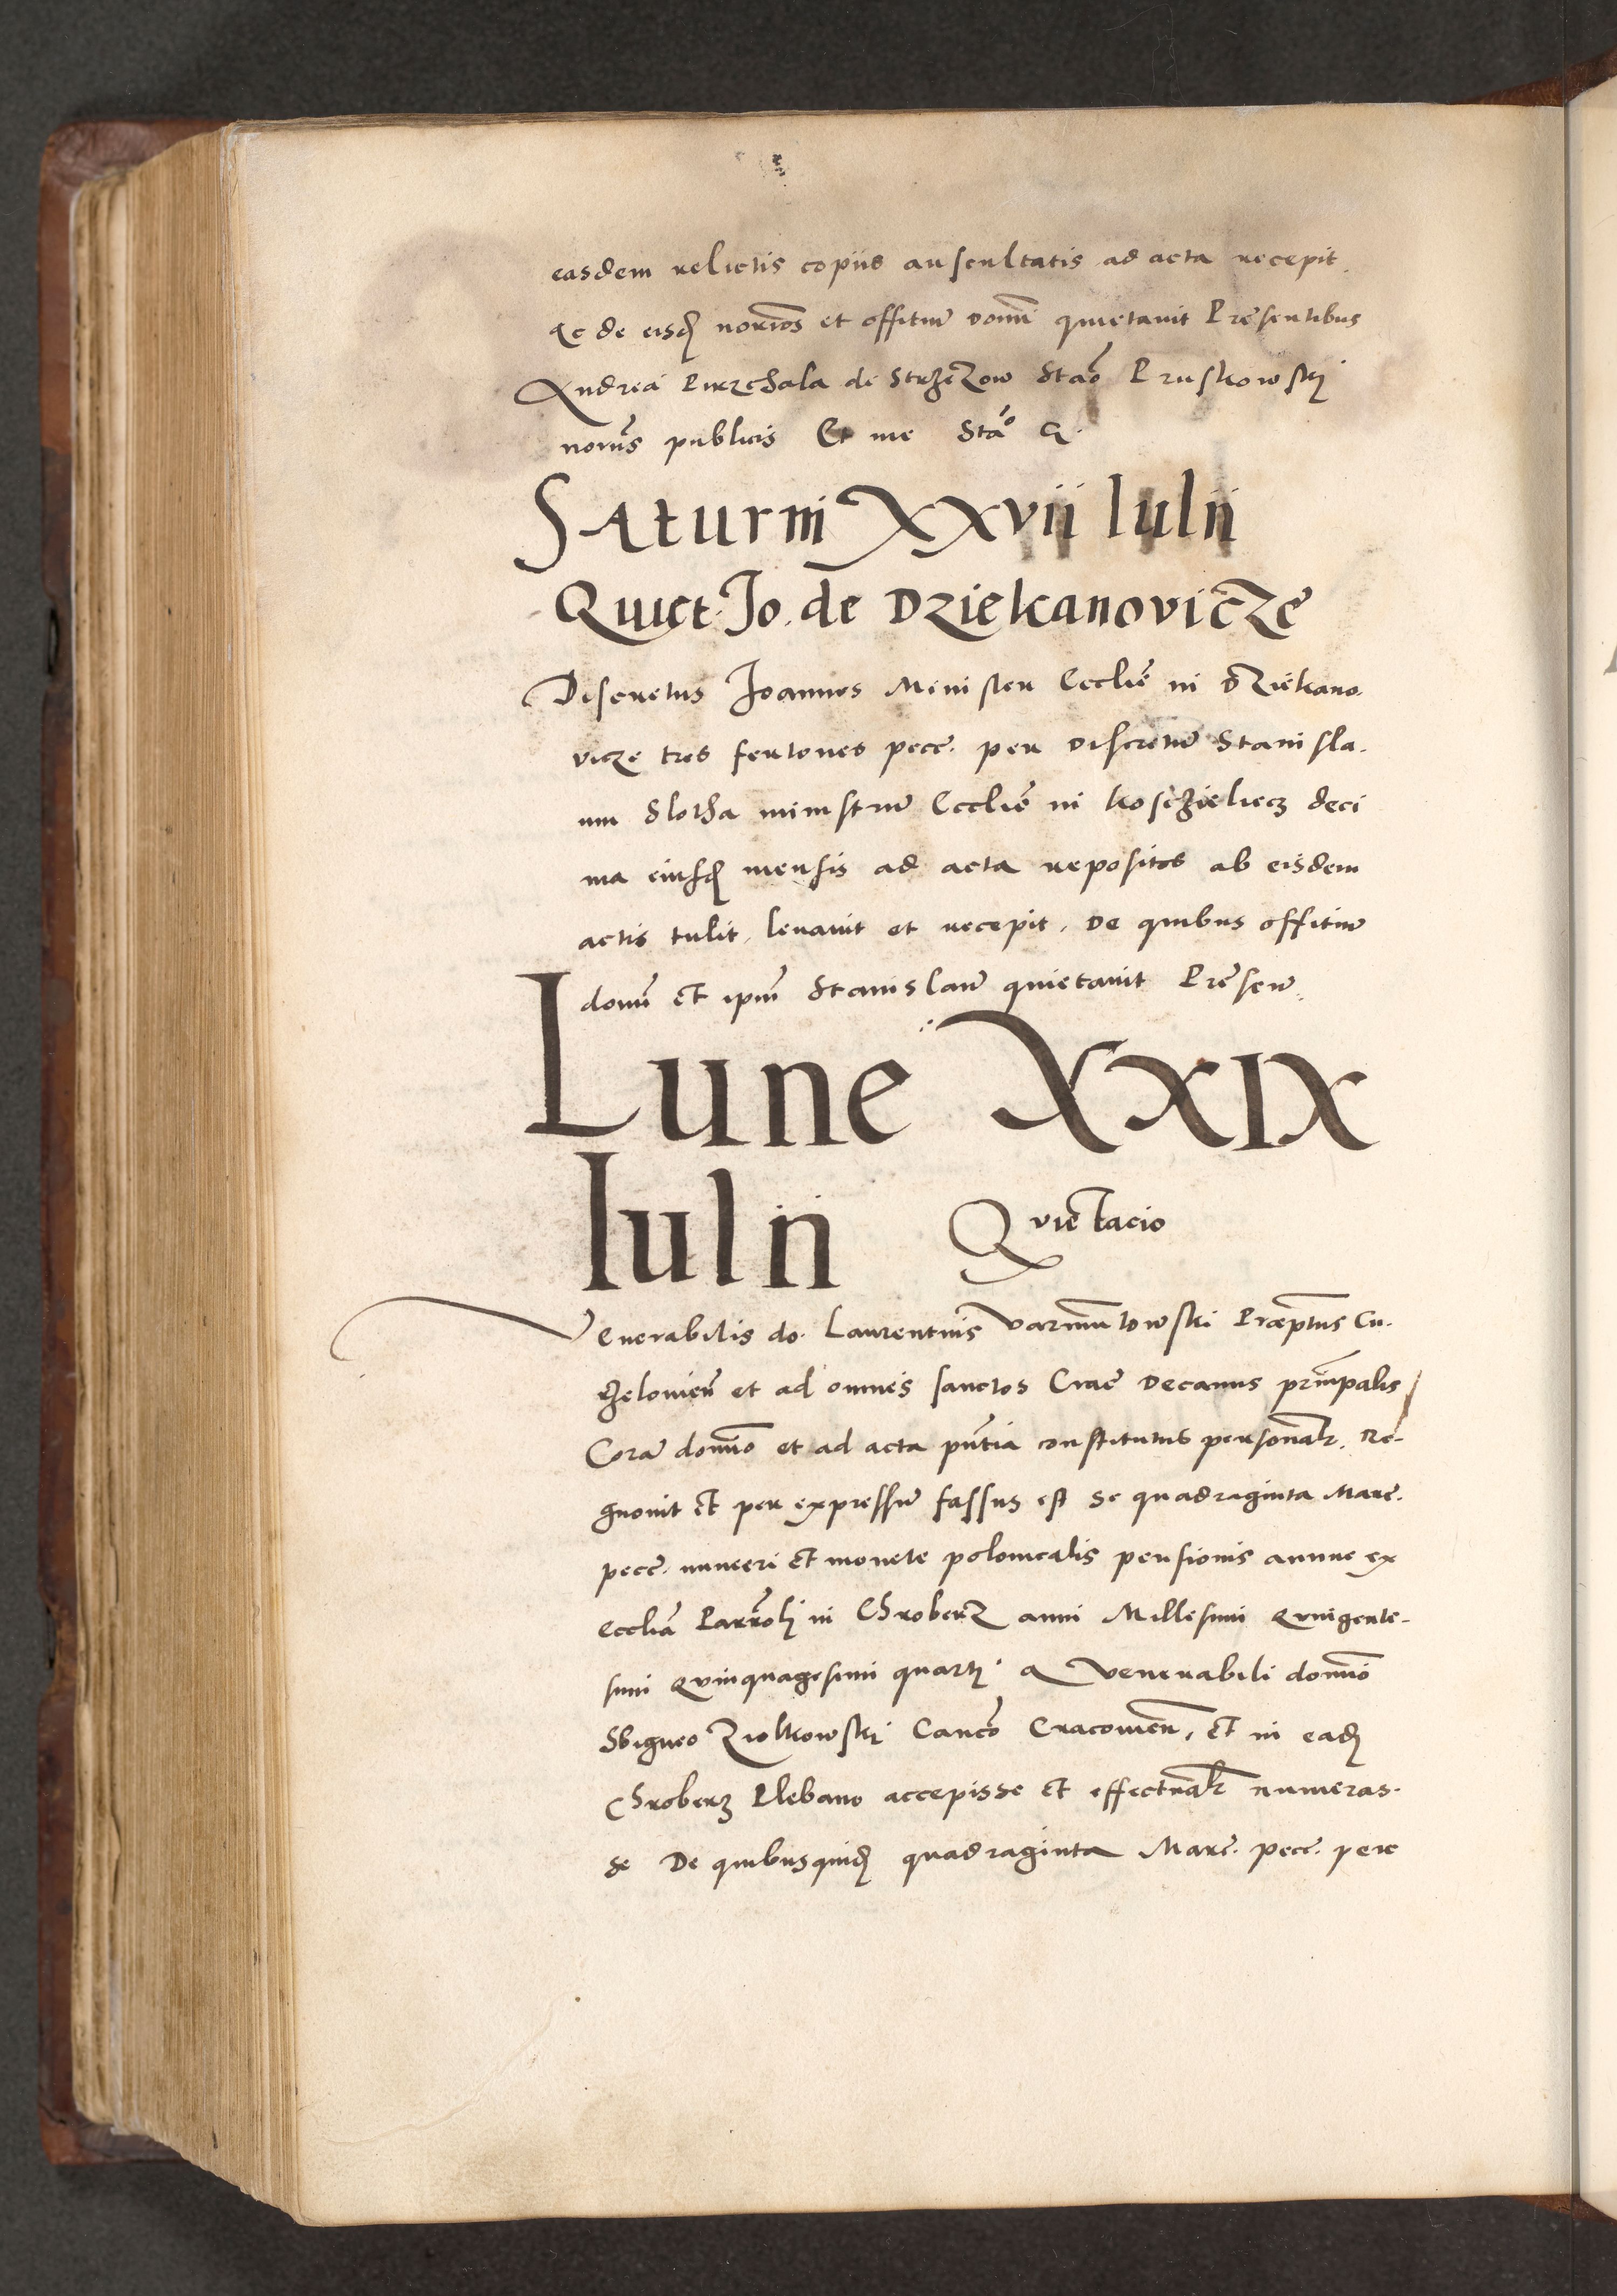 easdem relictis copiis auscultatis ad acta recepit
Ac de eisd norios et offitiu domi quietavit Presentibus
Andrea Pierzchala de Strzezow Stao Pruskowskj
norijs publicis Et me Stao
Saturni XXvii Iulii
Quiet Jo. de Dziekanovicze
Discretus Joannes Minister Ecclie in Dziekano
vicze tres fertones pecc. per discretu Stanisla
um Slotha ministru Ecclie in Kosczielecz deci
ma eiusd mensis ad acta repositos ab eisdem
actis tulit, levavit et recepit, De quibus offitiu
domi et ipm Stanislau quietavit Presen
Lune XXIX
Iulii Quietacio
Venerabilis do. Laurentius Varmuntowski Præptus Cu-
rzelovien et ad omnes sanctos Crac Decanus principalis
Cora domino et ad acta pntia constitutus personalr. Re-
gnovit et per expressu fassus est se quadraginta Marc.
pecc. numeri et monete polonicalis pensionis annue ex
ecclia Parrolj in Chroberz anni Millesimi Quingente-
simi Quinquagesimi quartj a Venerabili domino
Sbigneo Ziolkowskj Canco Cracovien, et in ead
Chroberz Plebano accepisse et effectualr numeras-
se De quibusquid quadraginta Marc. pecc. per